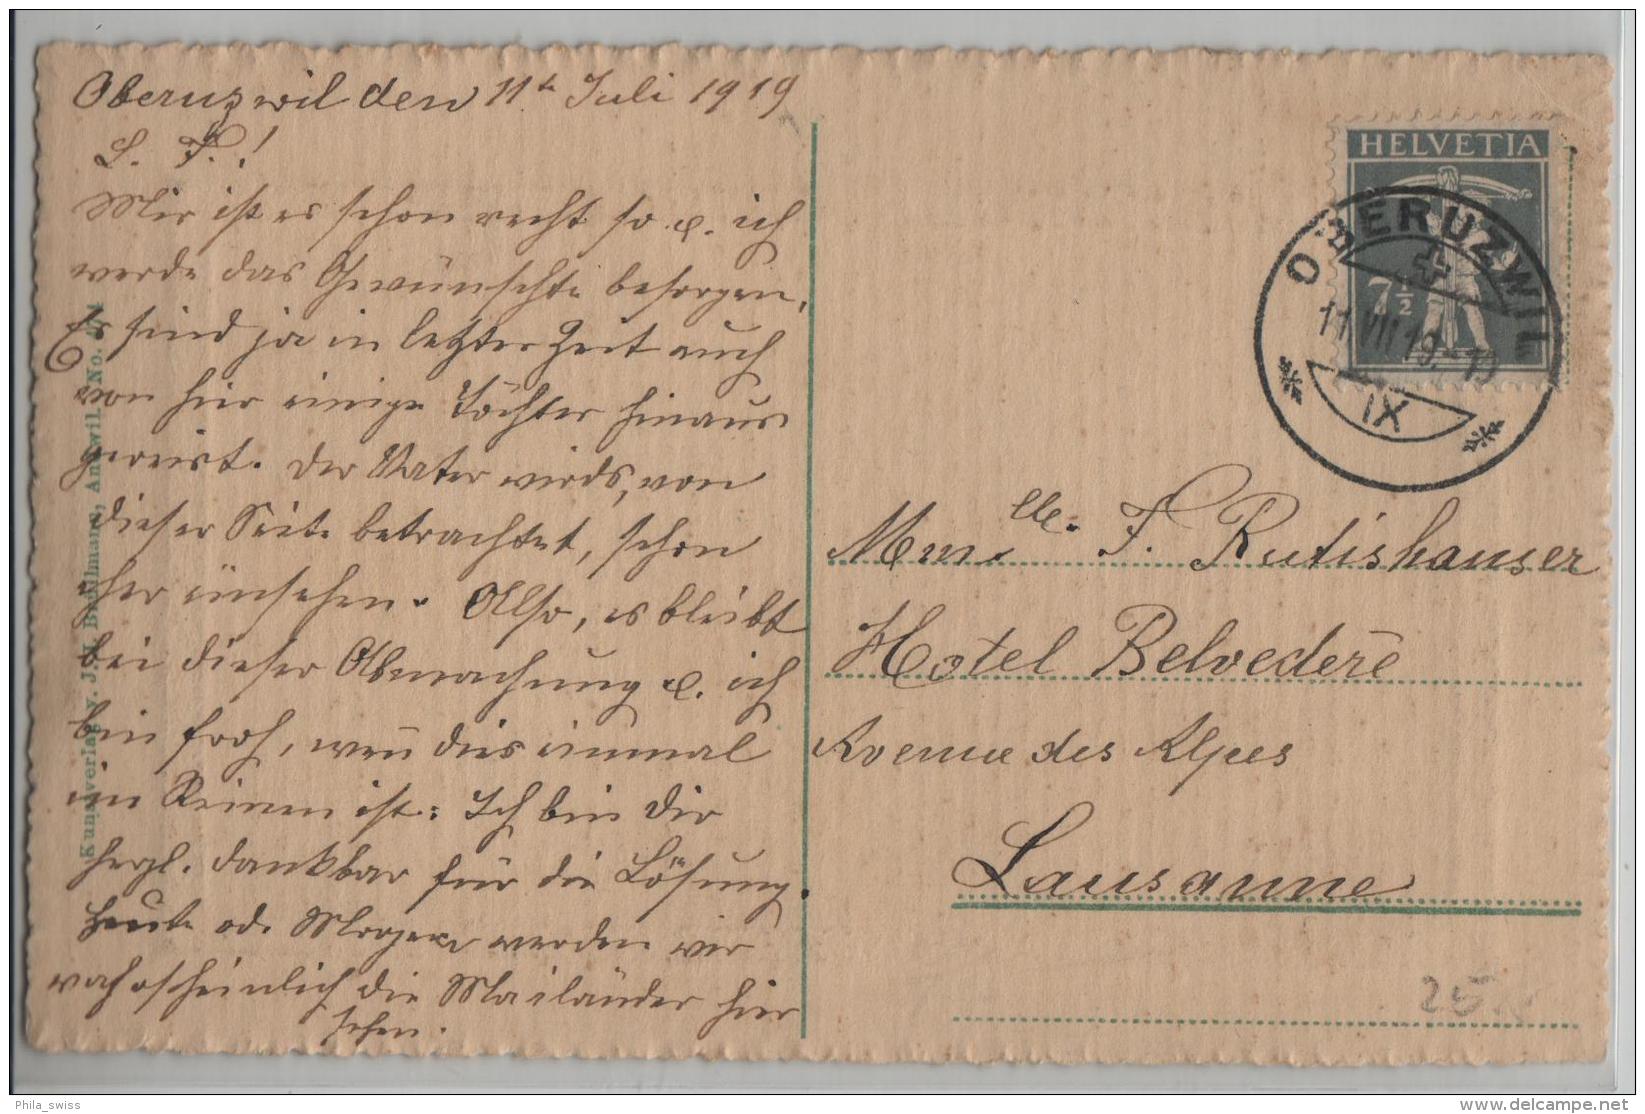 Oberuzwil den 11te Juli 1919
L. F.!
Mir ist es schon recht so u. ich
werde das Gewünschte besorgen.
Es sind ja in letzter Zeit auch
von hier einige Töchter hinaus
gereist. Der Vater wirds, von
dieser Seite betrachtet, schon
eher einsehen. Also, es bleibt
bei dieser Abmachung u. ich
bin froh, wen̄ dies einmal
im Reinen ist. Ich bin Dir
herzl. dankbar für die Lösung.
Heute od. Morgen werden wir
wahrscheinlich die Mailänder hier
sehen.
Kunstverlag v. J. H. Brüllmann, Andwil. No.
HELVETIA
7½
OBERUZWIL
11.VII.19.-19
IX
Mmelle. F. Rutishauser
Hotel Belvedère
Avenue des Alpes
Lausanne
25.
Phila_swiss
delcampe.net